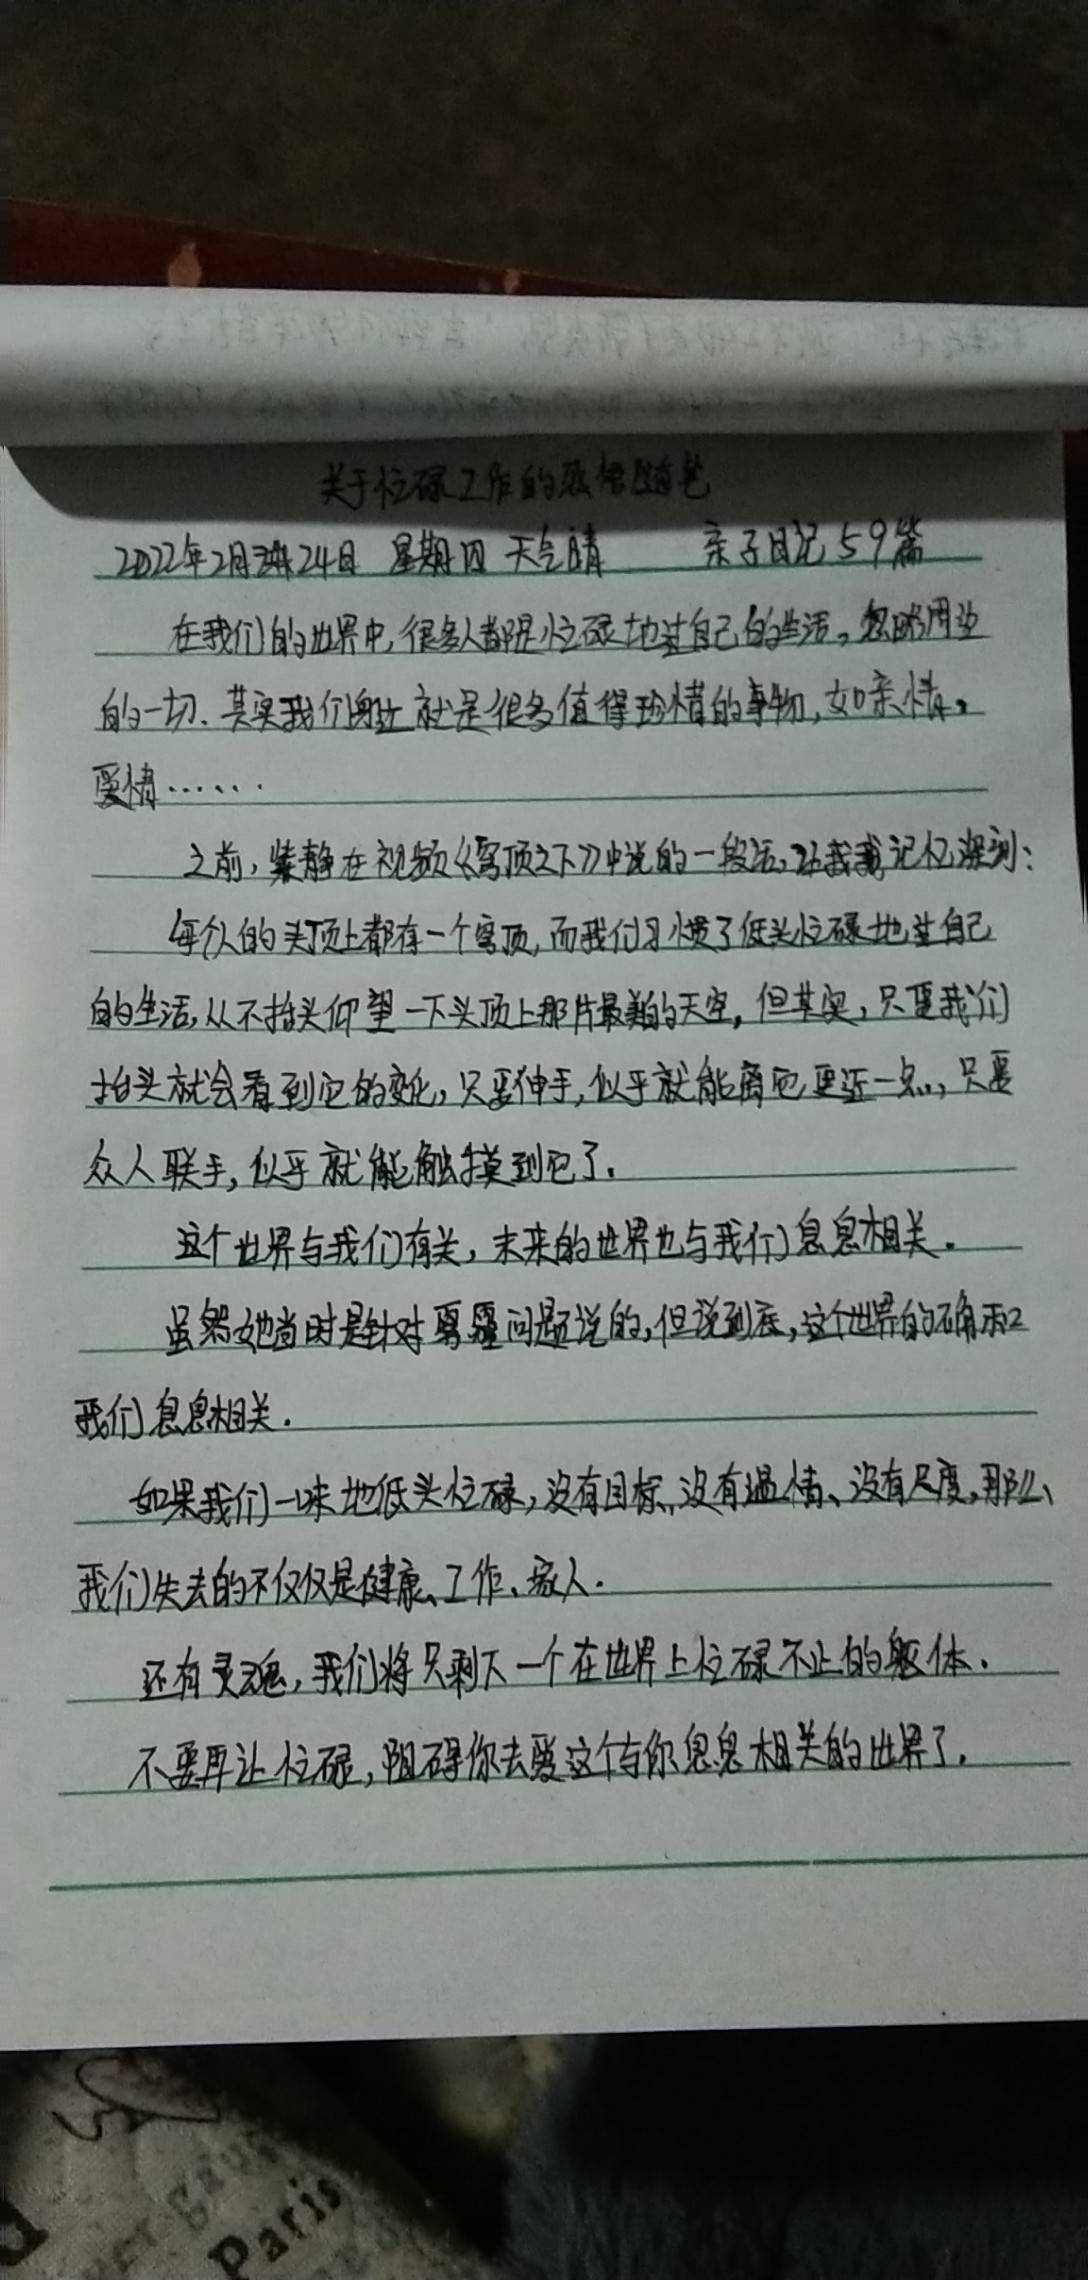 关于忙碌工作的感悟随笔
2022年2月24日 星期四 天气晴 亲子日记59篇
在我们的世界中,很多人都是忙碌地过自己的生活,忽略周边
的一切、其实我们身边就是很多值得珍惜的事物,如亲情,
爱情……
之前,柴静在视频《穹顶之下》中说的一段话,让我记忆深刻:
每个人的头顶上都有一个穹顶,而我们习惯了低头忙碌地过自己
的生活,从不抬头仰望一下头顶上那片最美的天空,但其实,只要我们
抬头就会看到它的变化,只要伸手,似乎就能离它更近一点,只要
众人联手,似乎就能触摸到它了.
这个世界与我们有关,未来的世界也与我们息息相关.
虽然她当时是针对雾霾问题说的,但说到底,这个世界的确和
我们息息相关.
如果我们一味地低头忙碌,没有目标、没有温情、没有尺度,那么、
我们失去的不仅仅是健康、工作、家人.
还有灵魂,我们将只剩下一个在世界上忙碌不止的躯体.
不要再让忙碌,阻碍你去爱这个与你息息相关的世界了.
Paris